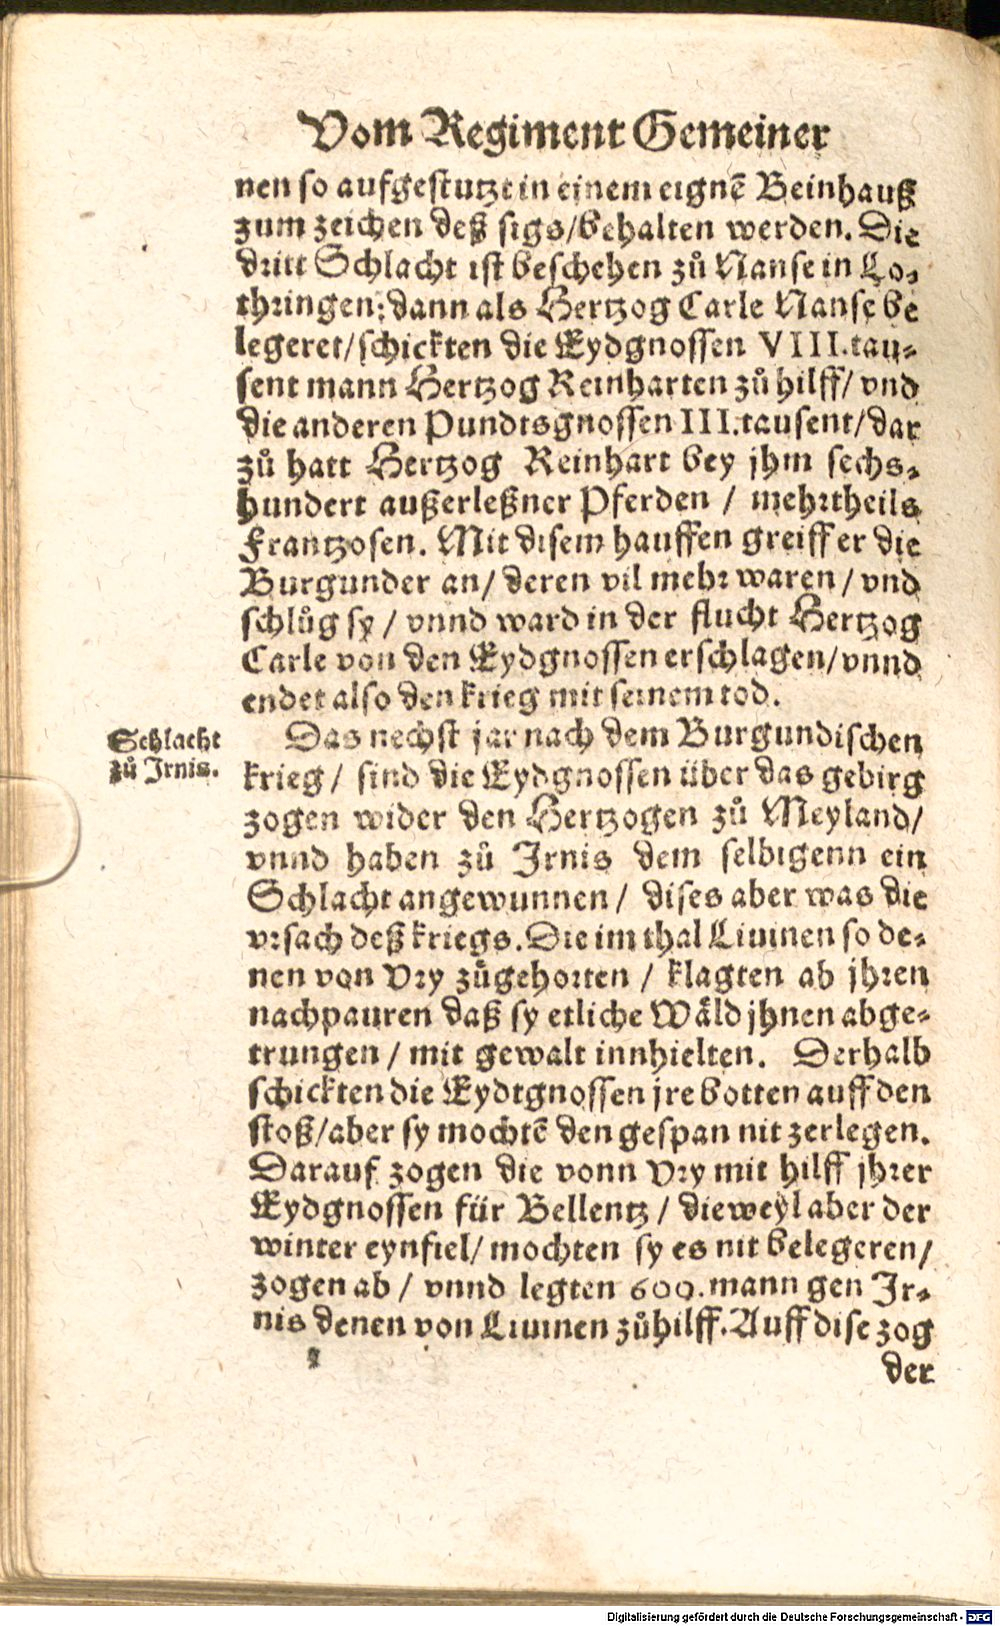 Vom Regiment Gemeiner
nen so aufgestutzt in einem eignē Beinhauß
zum zeichen deß sigs/behalten werden. Die
dritt Schlacht ist beschehen zů Nanse in Lo-
thringen: dann als Hertzog Carle Nanse be
legeret/schickten die Eydgnossen VIII. tau-
sent mann Hertzog Reinharten zů hilff/ vnd
die anderen Pundtsgnossen III. tausent/dar
zů hatt Hertzog Reinhart bey jhm sechs-
hundert außerleßner Pferden / mehrtheils
Frantzosen. Mit disem hauffen greiff er die
Burgunder an/ deren vil mehr waren / vnd
schlůg sy / vnnd ward in der flucht Hertzog
Carle von den Eydgnossen erschlagen/vnnd
endet also den krieg mit seinem tod.
Schlacht
zů Jrnis.
Das nechst jar nach dem Burgundischen
krieg / sind die Eydgnossen über das gebirg
zogen wider den Hertzogen zů Meyland/
vnnd haben zů Jrnis dem selbigenn ein
Schlacht angewunnen / dises aber was die
vrsach deß kriegs. Die im thal Liuinen so de-
nen von Vry zůgehorten / klagten ab jhren
nachpauren daß sy etliche Wäld jhnen abge-
trungen / mit gewalt innhielten. Derhalb
schickten die Eydtgnossen jre botten auff den
stoß/aber sy mochtē den gespan nit zerlegen.
Darauf zogen die vonn Vry mit hilff jhrer
Eydgnossen für Bellentz / dieweyl aber der
winter eynfiel/ mochten sy es nit belegeren/
zogen ab / vnnd legten 600. mann gen Jr-
nis denen von Liuinen zůhilff. Auff dise zog
der
Digitalisierung gefördert durch die Deutsche Forschungsgemeinschaft - DFG